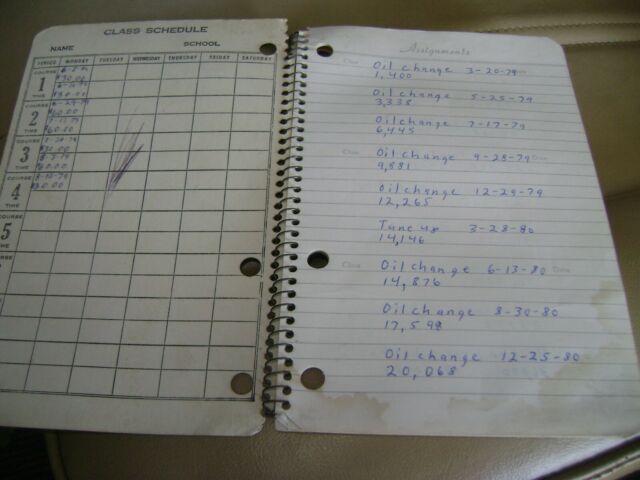 CLASS SCHEDULE
NAME SCHOOL
PERIOD MONDAY TUESDAY WEDNESDAY THURSDAY FRIDAY SATURDAY
COURSE
1
$30.00
TIME
$30.00
COURSE
2
$60.00
TIME
$60.00
COURSE
3
$30.00
TIME
COURSE
4
$30.00
TIME
COURSE
5
TIME
Assignments
Oil change 3-20-79
1,400
Oil change 5-25-79
3,338
Oil change 7-17-79
6,445
Class Oil change 9-28-79 Date
9,881
Oil change 12-29-79
12,265
Tune up 3-28-80
14,146
Class Oil change 6-13-80 Date
14,876
Oil change 8-30-80
17,598
Oil change 12-25-80
20,068